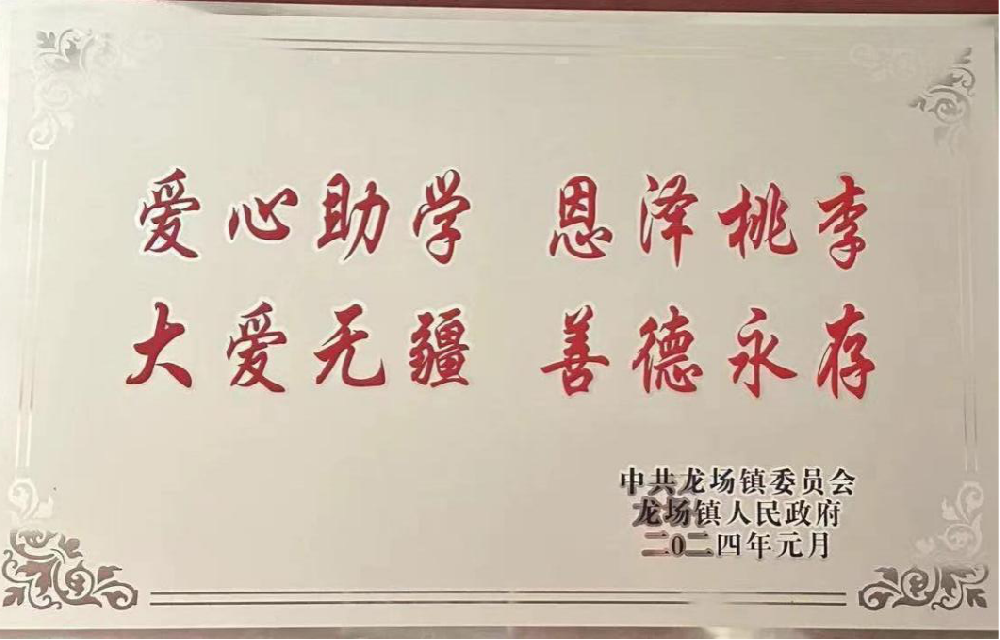 爱心助学 恩泽桃李
大爱无疆 善德永存
中共龙场镇委员会
龙场镇人民政府
二0二四年元月